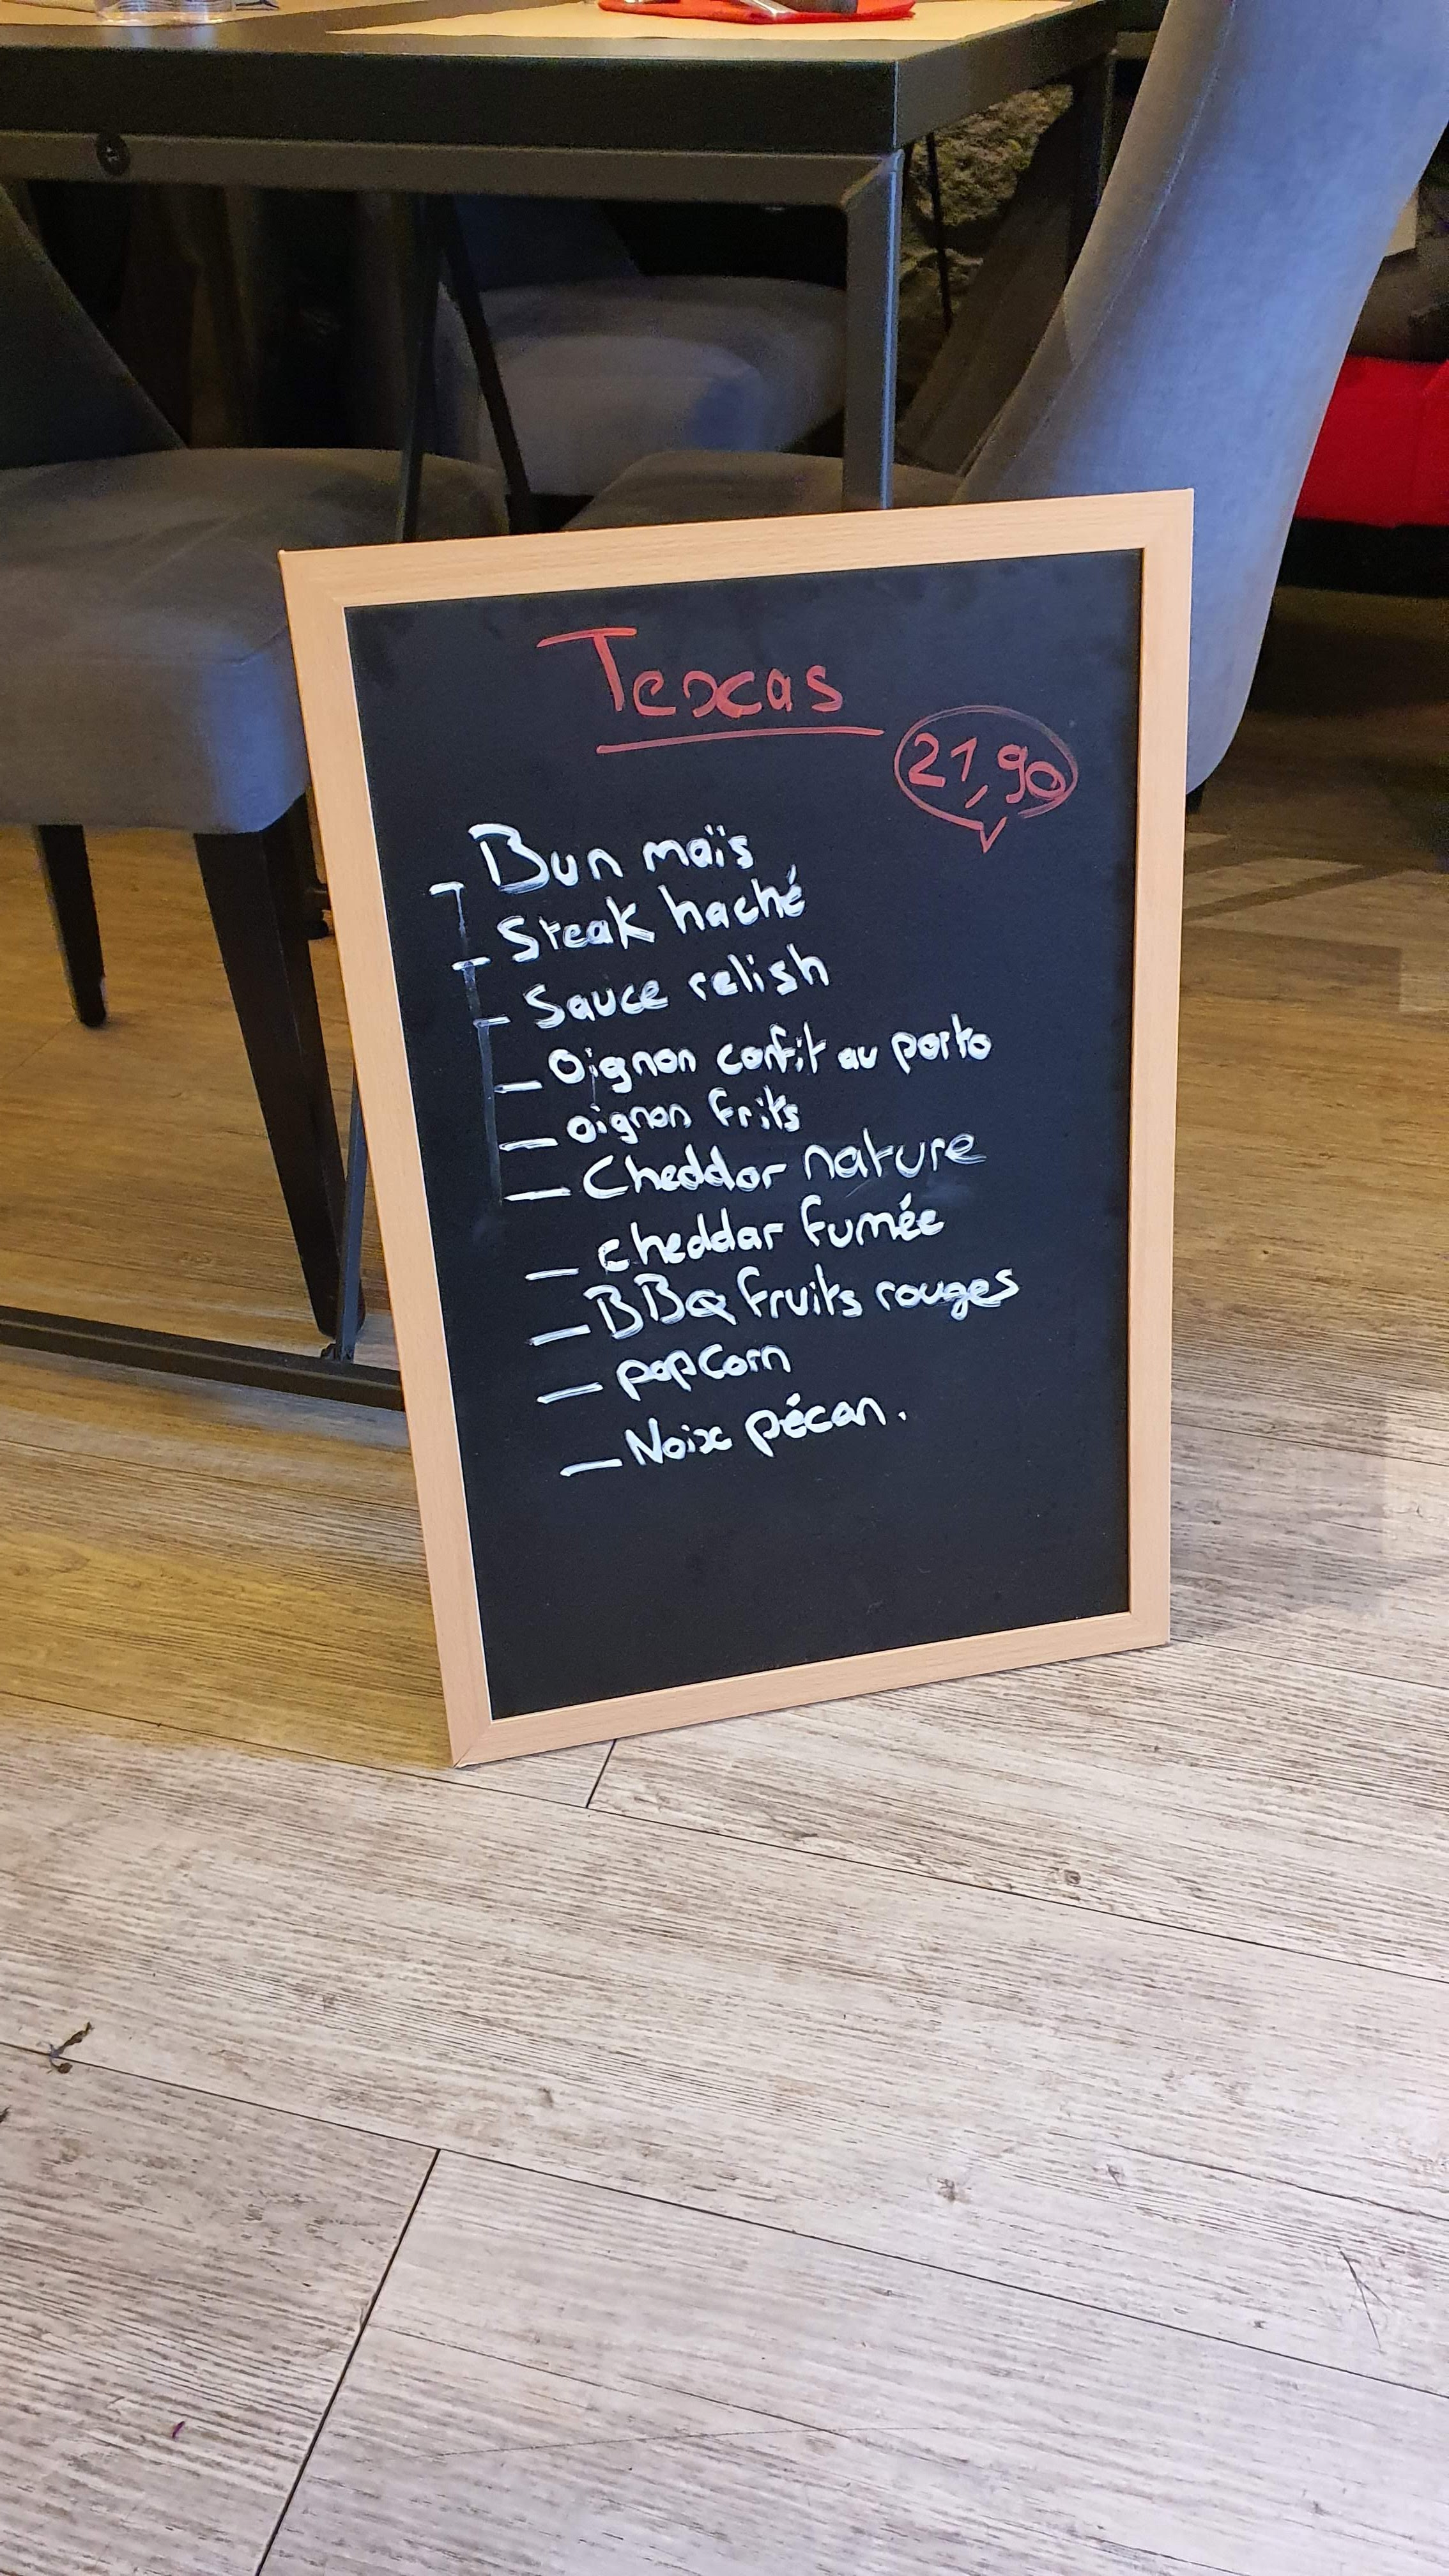 Texcas
21,90
_ Bun maïs
_ Steak haché
_ Sauce relish
_ Oignon confit au porto
_ oignon frits
_ Cheddar nature
_ cheddar fumée
_ BBQ fruits rouges
_ popcorn
_ Noix pécan.